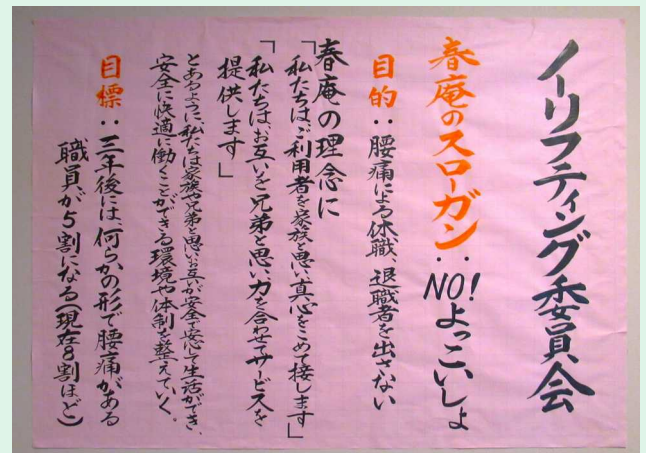 ノーリフティング委員会
春庵のスローガン：NO!よっこいしょ
目的：腰痛による休職、退職者を出さない
春庵の理念に
「私たちは、ご利用者を家族と思い真心をこめて接します」
「私たちはお互いを兄弟と思い力を合わせてサービスを
提供します」
とあるように、私たちは家族や兄弟と思いお互いが安全で安心して生活ができ、
安全に快適に働くことができる環境や体制を整えていく。
目標：三年後には何らかの形で腰痛がある
職員が5割になる（現在8割ほど）